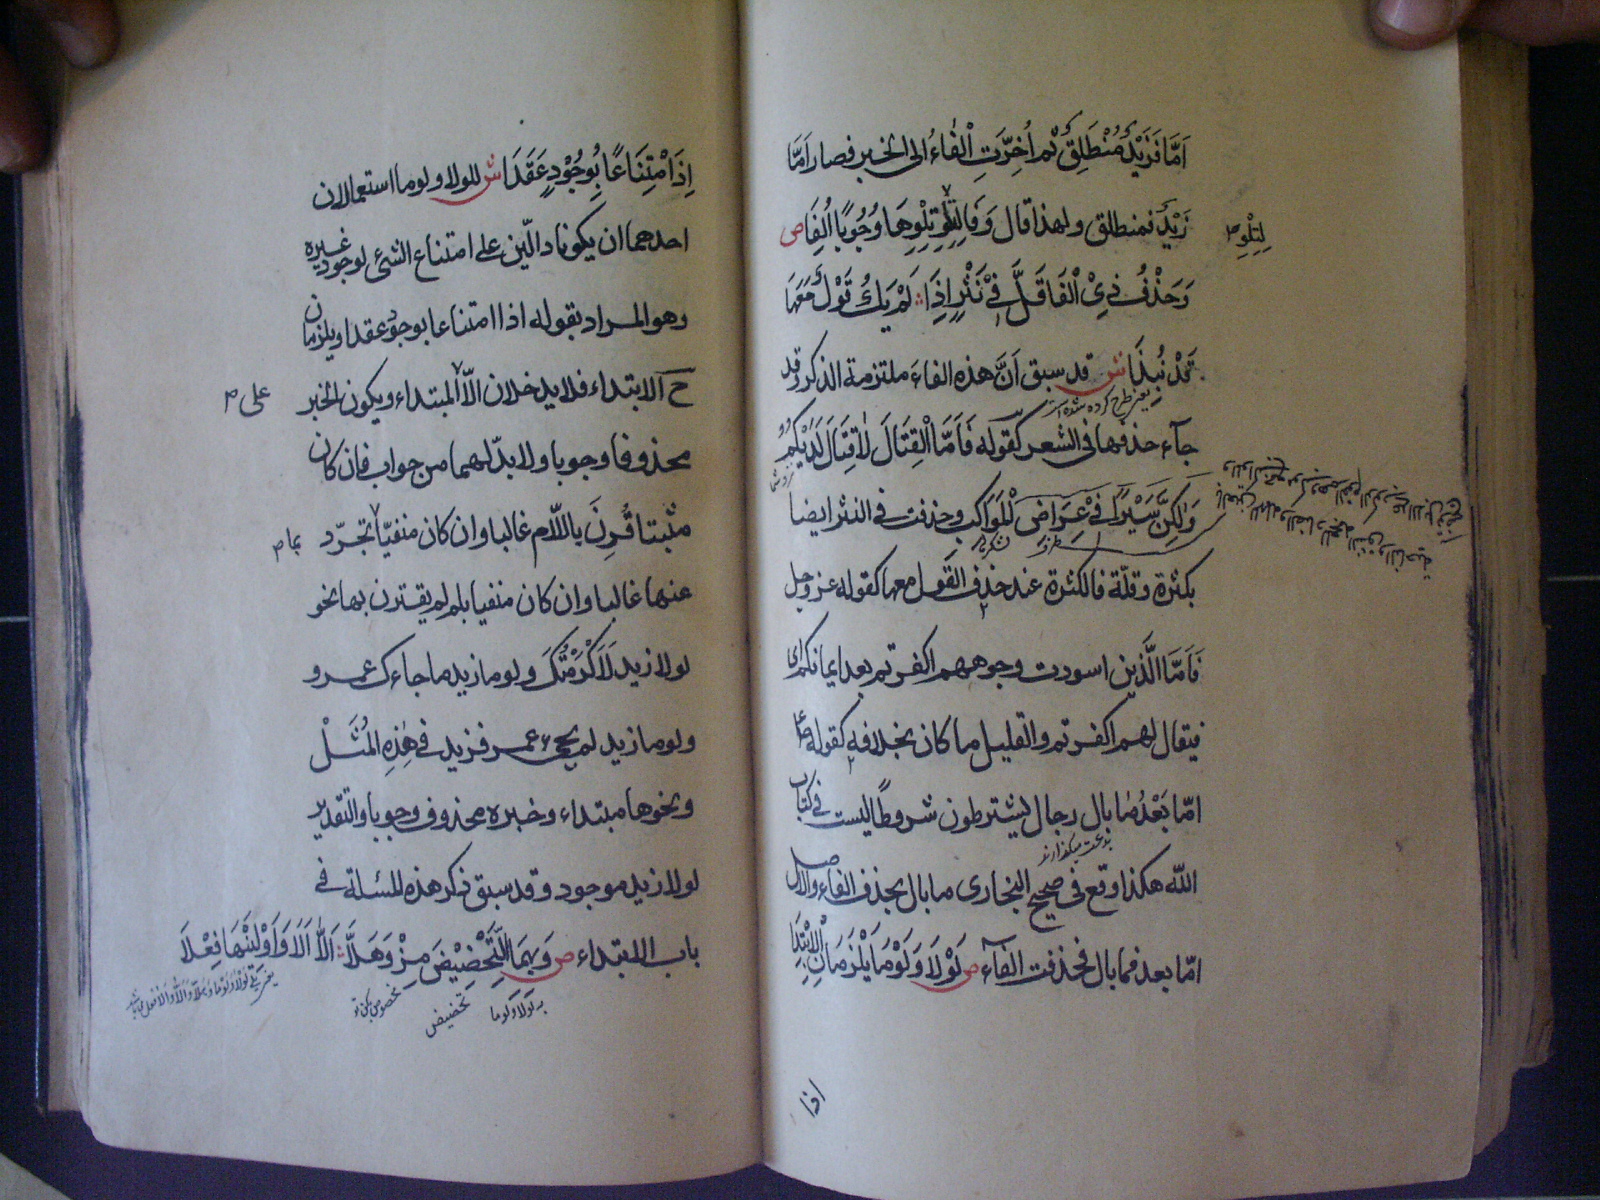 اَمَّا فَزَيْدٌ مُنْطَلِقٌ ثم اُخِّرَتِ الْفَاءُ الى الخبر فصار اَمَّا
زَيْدٌ فمنطلق ولهذا قال وَفَا لِتِلْوِ تِلْوِهَا وُجُوبًا اُلِفَا ص
لِتِلْوِ م
وَحَذْفُ ذِيْ الْفَا قَلَّ فِيْ نَثْرٍ اِذَا لَمْ يَكُ قَوْلٌ مَعَهَا
قَدْ نُبِذَا ش قد سبق اَنَّ هذه الفاءَ ملتزمة الذكر وقد
يعنى طرح كرده شده است
جآء حذفها فى الشعر كقوله فَاَمَّا الْقِتَالَ لَا قِتَالَ لَدَيْكُمُ
وَلٰكِنَّ سَيْرًا فِيْ عِرَاضِ الْمَوَاكِبِ وحذفت فى النثر ايضا
بكثرة وقلّة فالكثرة عند حذف القول معها كقوله عز وجل
فَاَمَّا الَّذين اسودت وجوههم اكفرتم بعد ايمانكم اى
فيقال لهم اكفرتم والقليل ما كان بخلافه كقوله ع م
امّا بَعْدُ مَا بال رجال يشترطون شروطًا ليست فى كتاب
الله هكذا وقع فى صحيح البخارى ما بال بحذف الفاء والاصل
امّا بعد فما بال فحذفت الفآء ص لَوْلَا وَلَوْمَا يَلْزَمَانِ الِابْتِدَا
اذا
اِذَا امْتِنَاعًا بِوُجُوْدٍ عَقَدَا ش للولا ولوما استعمالان
احدهما ان يكونا دالّين على امتناع الشئ لوجود غيره
وهو المراد بقوله اذا امتناعا بوجود عقدا ويلزمان
ح الابتداء فلا يدخلان الّا المبتداء ويكون الخبر
على م
محذوفا وجوبا ولا بدّ لهما من جواب فان كان
مثبتا قُرِنَ باللّام غالبا وان كان منفيّا تجرّد
بما م
عنها غالبا وان كان منفيا بلم لم يقترن بها نحو
لولا زيد لَاَكْرَمْتُكَ ولوما زيد ما جاءك عمرو
ولوما زيد لم يجئ عمر فزيد فى هٰذِهِ المُثَلْ
ونحوها مبتداء وخبره محذوف وجوبا والتقدير
لولا زيد موجود وقد سبق ذكر هذه المسئلة فى
باب المبتداء ص وَبِهِمَا التَّحْضِيْضَ مِزْ وَهَلَّا اَلَّا اَلَا وَاَوْلِيَنْهَا فِعْلَا
به لولا ولوما
تحضيض